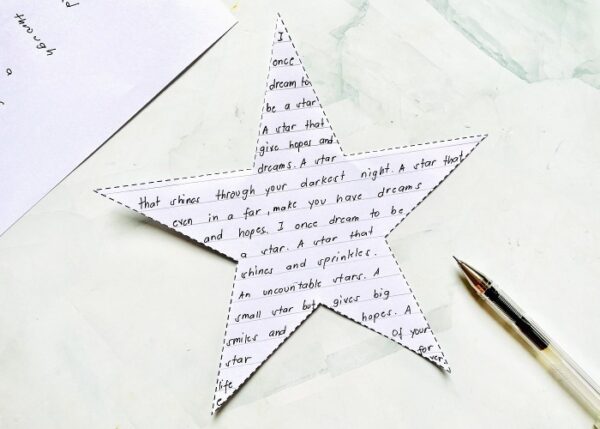 through
a
I
once
dream to
be a star
A star that
give hopes and
dreams. A star
that shines through your darkest night. A star that
even in a far, make you have dreams
and hopes. I once dream to be
a star. A star that
shines and sprinkles.
An uncountable stars. A
small star but gives big
smiles and hopes. A
star Of your
life for